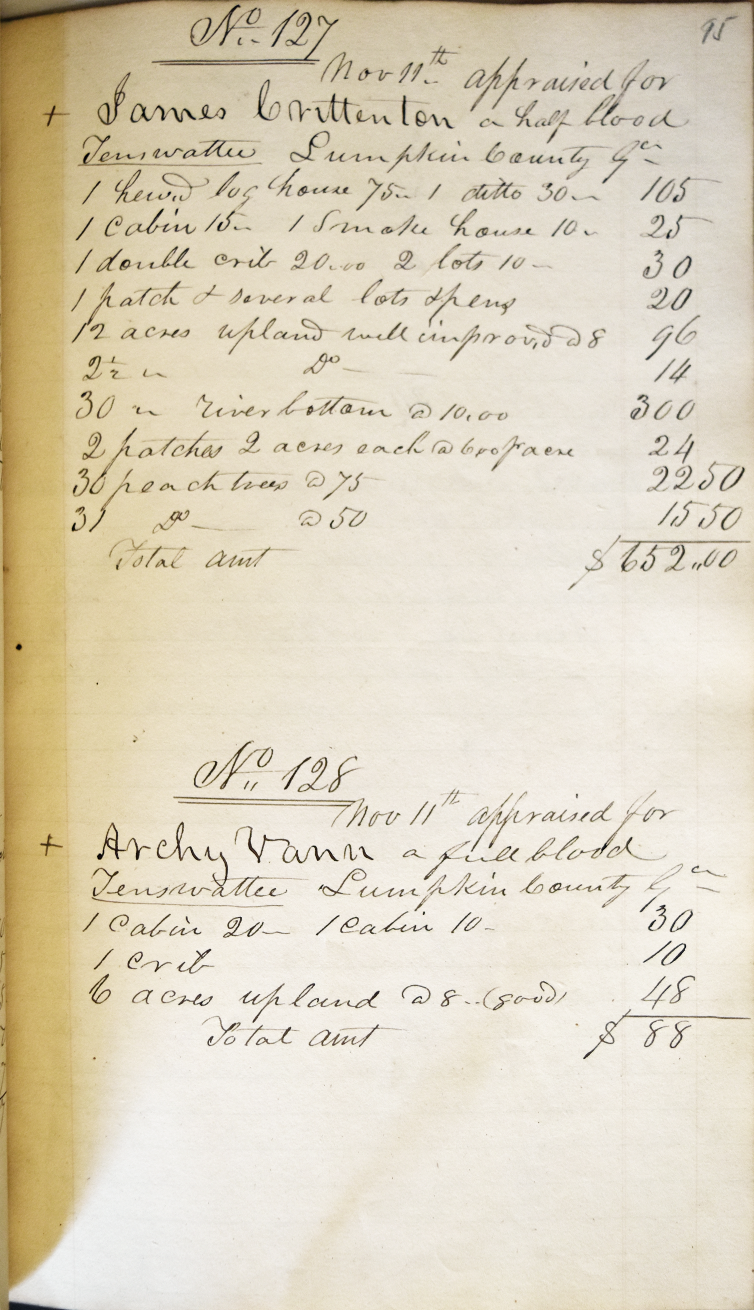 95
No 127
Nov 11th appraised for
+ James Crittenton a half blood
Tenswattee Lumpkin County Ga
1 hewd log house 75- 1 ditto 30- 105
1 Cabin 15- 1 Smoke house 10- 25
1 double crib 20.00 2 lots 10- 30
1 patch & several lots & pens 20
12 acres upland well improvd @ 8 96
2½ " Do - - 14
30 " River bottom @ 10.00 300
2 patches 2 acres each @ 6oo pr acre 24
30 peach trees @ 75 2250
31 Do - @ 50 1550
Total amt $652.00
No 128
Nov 11th appraised for
+ Archy Vann a full blood
Tenswattee Lumpkin County Ga
1 Cabin 20- 1 Cabin 10- 30
1 crib 10
6 acres upland @ 8.. (good) 48
Total amt $ 88